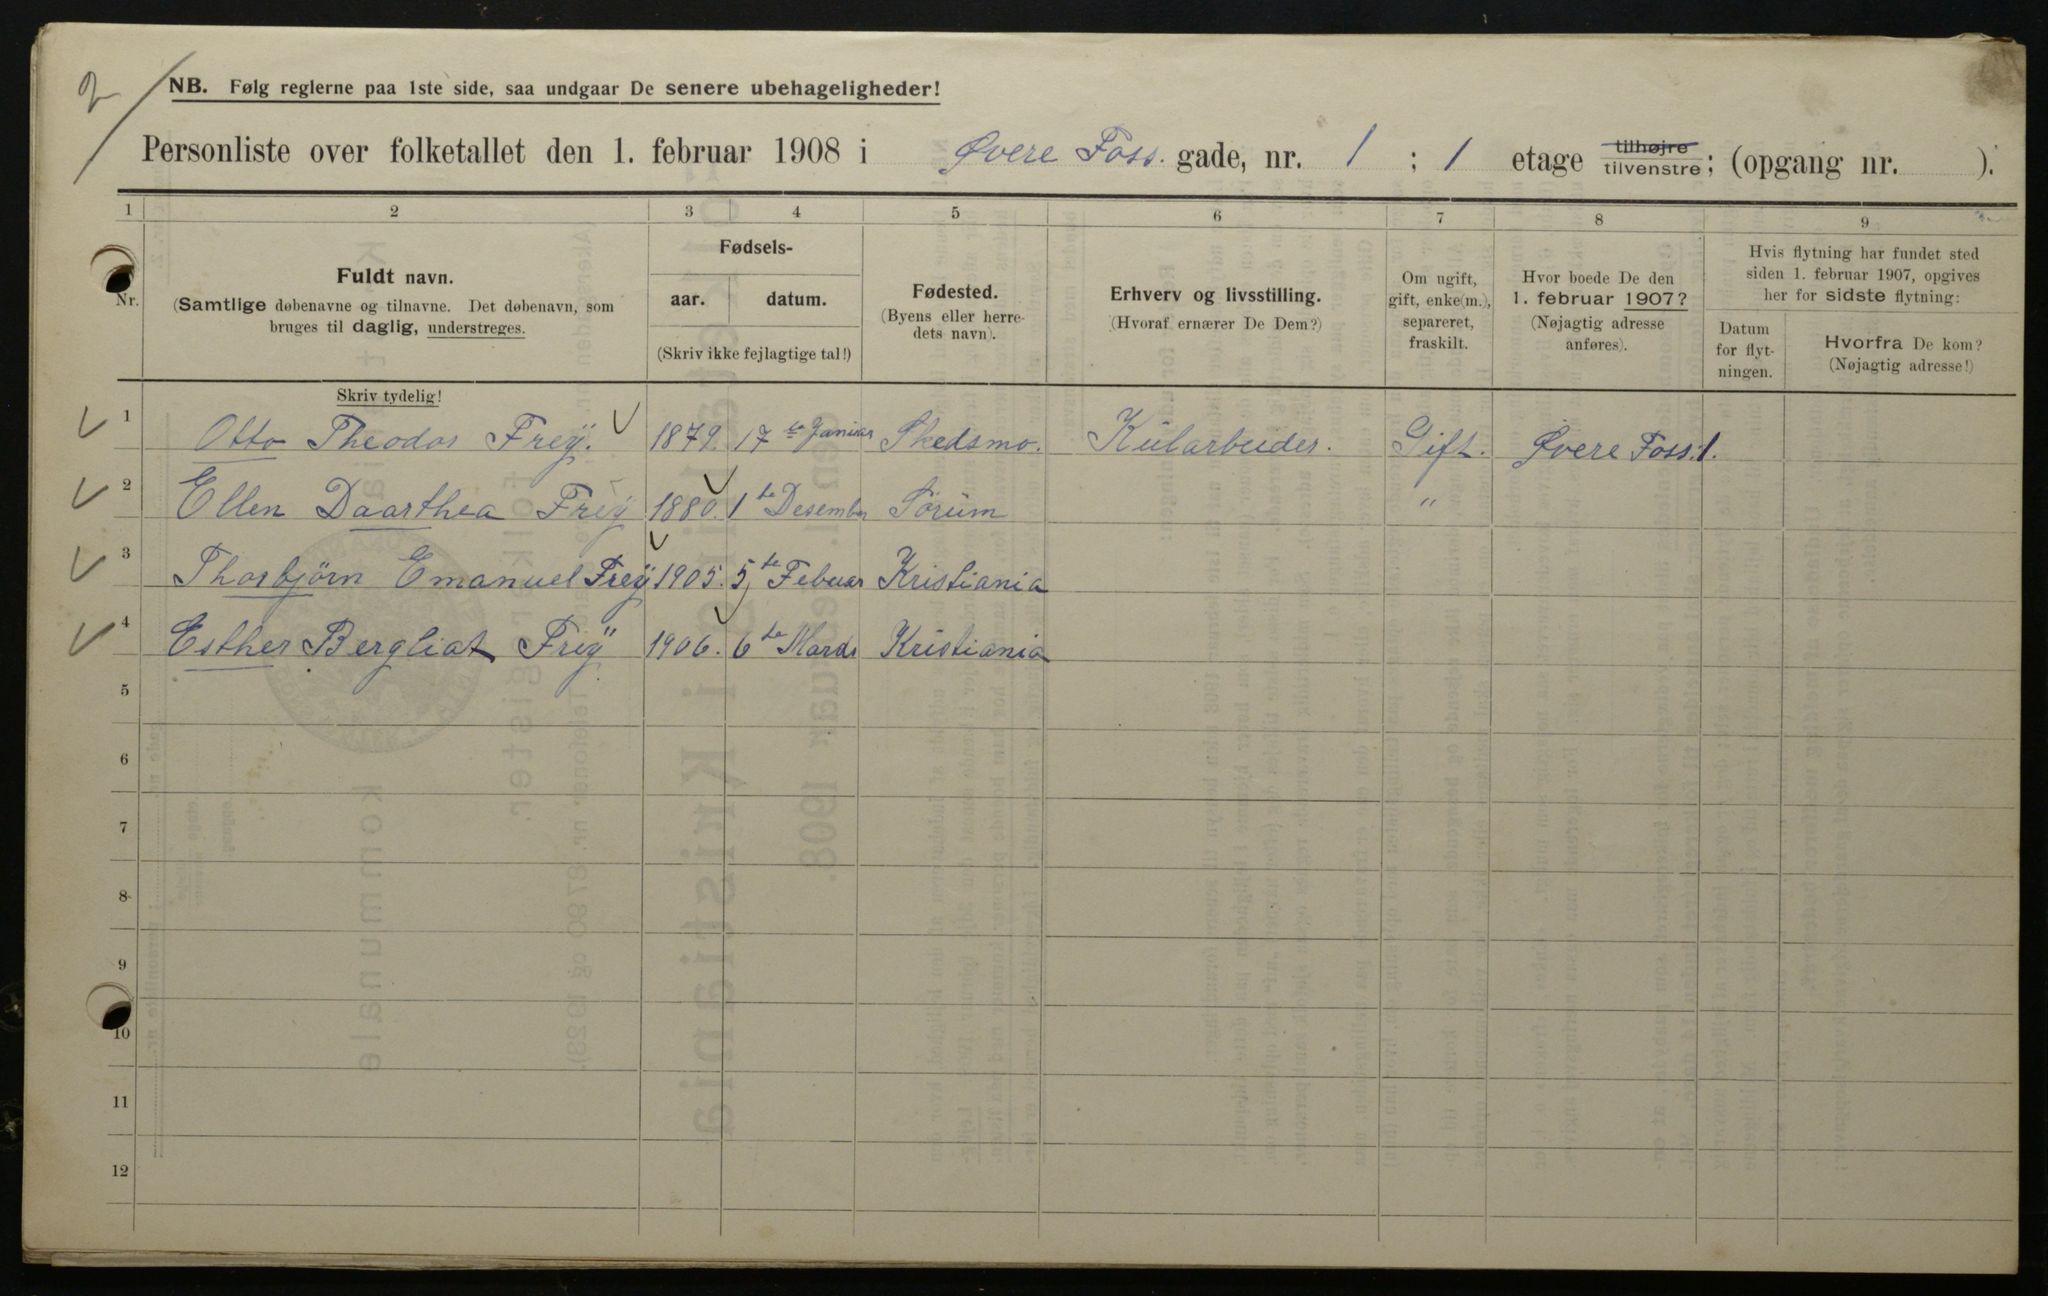 2
NB. Følg reglerne paa 1ste side, saa undgaar De senere ubehageligheder!
Personliste over folketallet den 1. februar 1908 i Øvere Foss. gade, nr. 1 ; 1 etage tilhøjre tilvenstre; (opgang nr. ).
1 2 3 4 5 6 7 8 9
Nr.
Fuldt navn.
(Samtlige døbenavne og tilnavne. Det døbenavn, som
bruges til daglig, understreges.
Skriv tydelig!
Fødsels-
aar. datum.
(Skriv ikke fejlagtige tal!)
Fødested.
(Byens eller herre-
dets navn).
Erhverv og livsstilling.
(Hvoraf ernærer De Dem?)
Om ugift,
gift, enke(m.),
separeret,
fraskilt.
Hvor boede De den
1. februar 1907?
(Nøjagtig adresse
anføres).
Hvis flytning har fundet sted
siden 1. februar 1907, opgives
her for sidste flytning:
Datum
for flyt-
ningen.
Hvorfra De kom?
(Nøjagtig adresse!)
1 Otto Theodor Freÿ. 1879. 17 te Januar Skedsmo. Külarbeider. Gift. Øvere Foss. 1.
2 Ellen Daarthea Freÿ 1880. 1 te Desember Sörüm "
3 Thorbjörn Emanuel Freÿ 1905. 5 te Febuar Kristiania
4 Esther Bergliat Freÿ 1906. 6 te Mards Kristiania
5
6
7
8
9
10
11
12